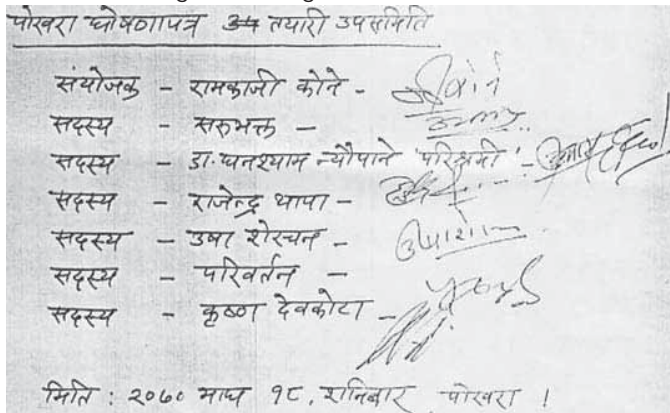 पोखरा घोषणापत्र तयारी उपसमिति
संयोजक - रामकाजी कोने -
सदस्य - सरुभक्त -
सदस्य - डा. घनश्याम न्यौपाने 'परिश्रमी' -
सदस्य - राजेन्द्र थापा -
सदस्य - उषा शेरचन -
सदस्य - परिवर्तन -
सदस्य - कृष्ण देवकोटा -
मिति : २०७० माघ १८, शनिबार पोखरा !